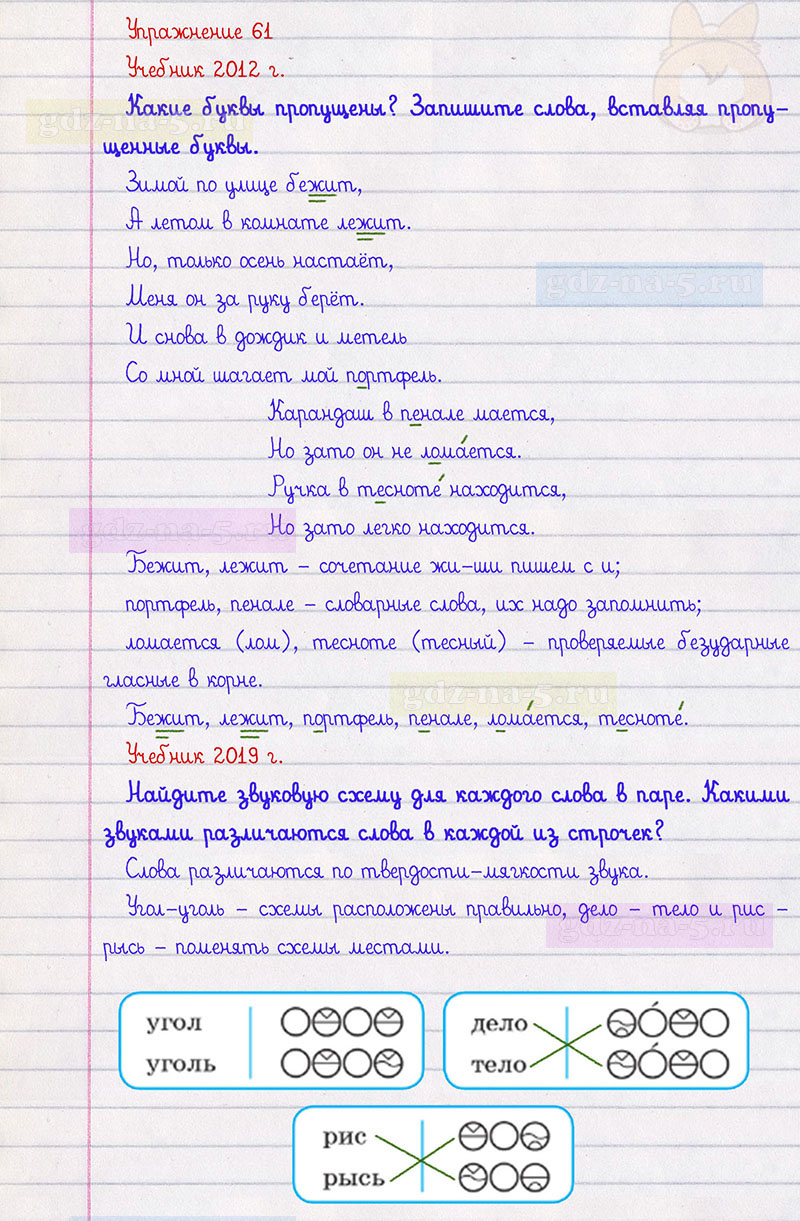 Упражнение 61
Учебник 2012 г.
Какие буквы пропущены? Запишите слова, вставляя пропу-
щенные буквы.
gdz-na-5.ru
Зимой по улице бежит,
А летом в комнате лежит.
Но, только осень настаёт,
gdz-na-5.ru
Меня он за руку берёт.
И снова в дождик и метель
Со мной шагает мой портфель.
Карандаш в пенале мается,
Но зато он не лома́ется.
Ручка в тесноте́ находится,
Но зато легко находится.
gdz-na-5.ru
Бежит, лежит – сочетание жи-ши пишем с и;
портфель, пенале – словарные слова, их надо запомнить;
ломается (лом), тесноте (тесный) – проверяемые безударные
гласные в корне.
gdz-na-5.ru
Бежит, лежит, портфель, пенале, лома́ется, тесноте́.
Учебник 2019 г.
Найдите звуковую схему для каждого слова в паре. Какими
звуками различаются слова в каждой из строчек?
Слова различаются по твердости-мягкости звука.
Угол-уголь – схемы расположены правильно, дело – тело и рис –
рысь – поменять схемы местами.
gdz-na-5.ru
угол
уголь
дело
тело
рис
рысь